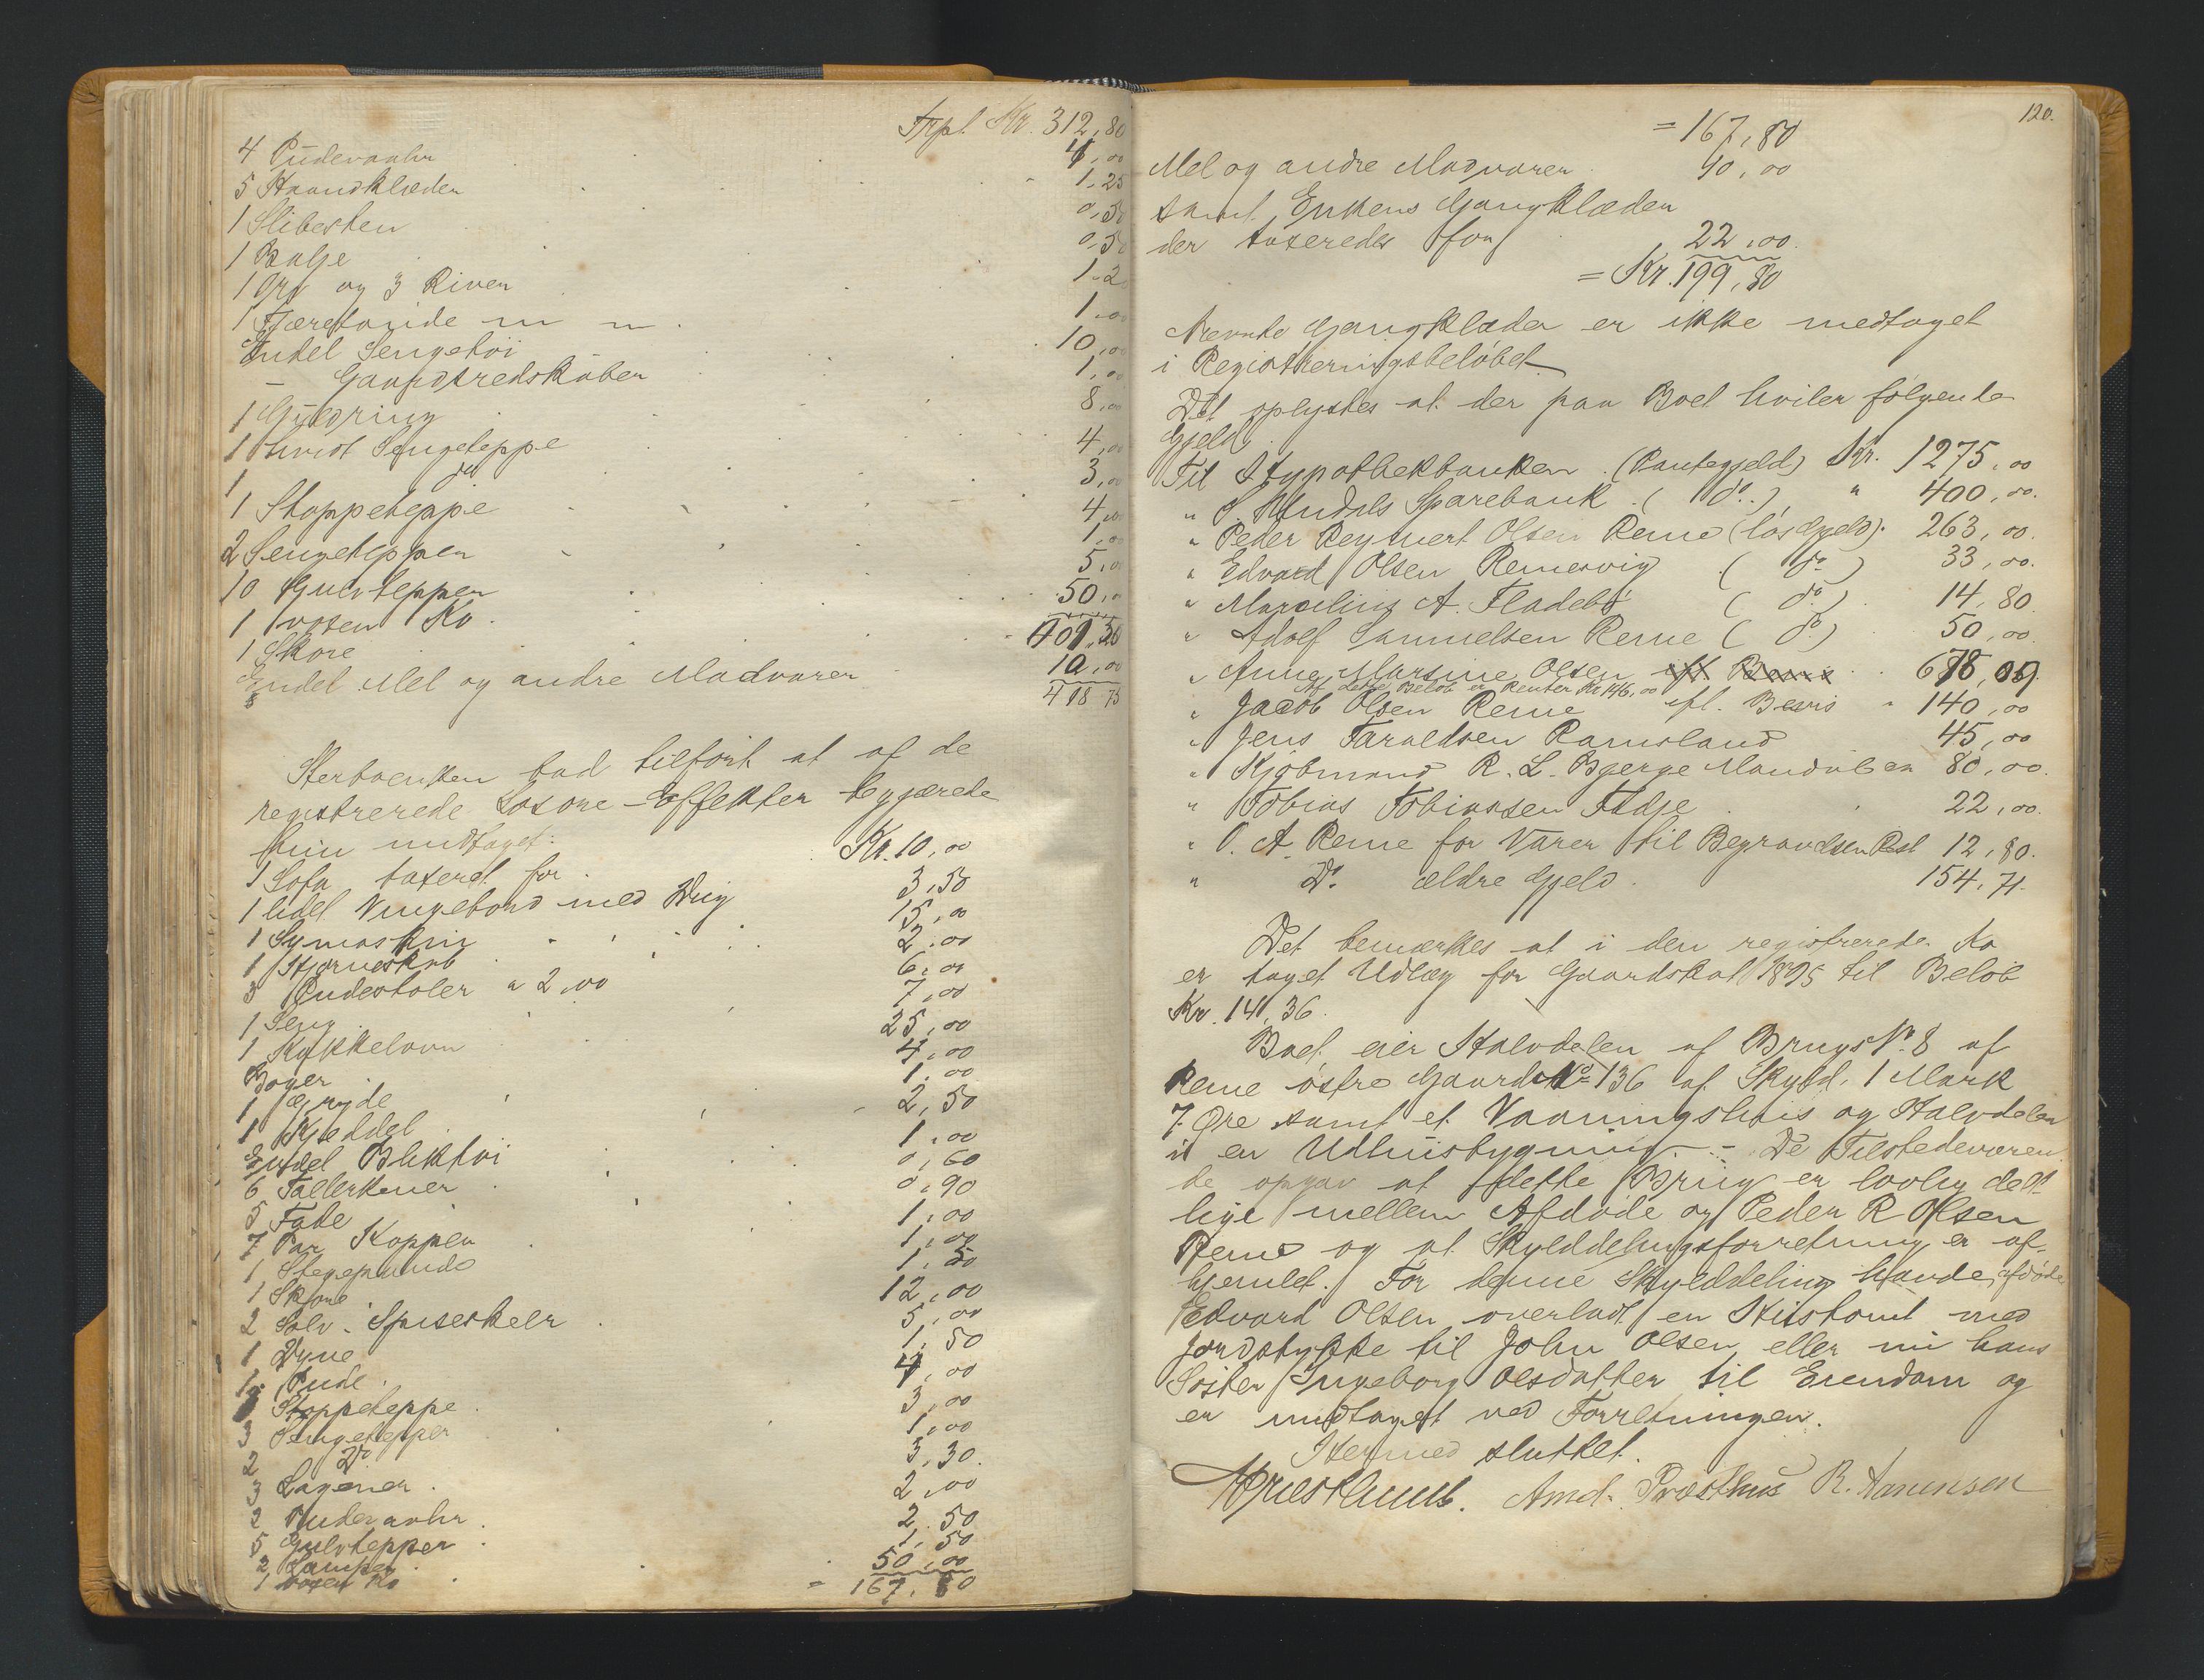 Trpt. Kr. 312,80
4 Pudevaahr 4,00
5 Haandklæder 1,25
1 Slibesten 0,50
1 Balje 0,50
1 Orv og 3 River 1,2
1 Tjæretønde m m. 1,00
Endel Sengetøi 10,00
— Gaardsredskaber 1,00
1 Guldring 8,00
1 hvidt Sengeteppe 4,00
1 do 3,00
1 Stoppeteppe 4,00
2 Sengetepper 1,00
10 Gulvtepper 5,00
1 voxen Ko. 50,00
1 Skore 401.30
Endel Mel og andre Madvarer 10,00
418 75
Sterboenken bad tilført at af de
registrerede Losøre-Effekter begjærede
hun undtaget:
1 Sofa taxeret for Kr. 10,00
1 lidet Vingebord med Dug 3,50
1 Symaskin 15,00
1 Hjørneskab 2,00
3 Pudestoler a 2,00 6,00
1 Seng 7,00
1 Kykkelovn 25,00
Bøger 4,00
1 Gryde 1,00
1 Kjeddel 2,50
Endel Bliktøi 1,00
6 Tallerkener 0,60
5 Fade 0,90
7 Par Kopper 1,00
1 Stegepande 1,00
1 Skore 1,50
2 Sølv-Spiseskeer 12,00
1 Dyne 5,00
1 Pude 1,50
1 Stoppeteppe 4,00
3 Sengetepper 3,00
2 Do 1,00
3 Lagener 3,30
2 Pudevahr 2,00
5 Gulvtepper 2,50
2 Lamper 1,50
1 voxen Ko 50,00
= 167,80
120.
= 167,80
Mel og andre Madvarer 10,00
samt Enkens Gangklæder
der taxeredes for 22,00.
= Kr. 199,80
Nevnte Gangklæder er ikke medtaget
i Registreringsbeløbet
Det oplystes at der paa Boet hviler følgende
Gjeld:
Til Hypothekbanken (Pantegjeld) Kr. 1275,00
" S. Undals Sparebank (do.) " 400,00.
" Peder Reynert Olsen Reme (løs Gjeld). 263,00.
" Edvard Olsen Remesvig (do) 33,00.
" Marselius A. Fladebø (do) 14,80
" Adolf Samuelsen Reme (do) 50,00.
" Anne Martine Olsen 678,00
Af dette Beløb er Renter Kr 146,00
" Jacob Olsen Reme efl. Bevis " 140,00
" Jens Taraldsen Ramsland 45,00
" Kjøbmand R. L. Bjerge Mandalen 80,00.
" Tobias Tobiassen Fidje 22,00.
" O. A. Reme for Varer til Begravelsen Rest 12,80.
" Do. ældre Gjeld 154,71.
Det bemærkes at i den registrerede Ko
er taget Udlæg for Gaardskat 1895 til Beløb
Kr. 14,36.
Boet eier Halvdelen af Brugs No. 8 af
Reme østre Gaards No 136 af Skyld. 1 Mark
7 Øre samt et Vaaningshus og Halvdelen
i en Udhusbygning. - De Tilstedeværen
de opgav at dette Brug er lovlig delt
lige mellem Afdøde og Peder R Olsen
Reme og at Skylddelingsforretning er af-
hjemlet. Før denne Skylddeling havde afdøde
Edvard Olsen overladt en Hustomt med
Jordstykke til John Olsen eller nu hans
Søster Ingeborg Olsdatter til Eiendom og
er undtaget ved Forretningen.
Hermed sluttet.
Amd. Præsthus R. Aanensen